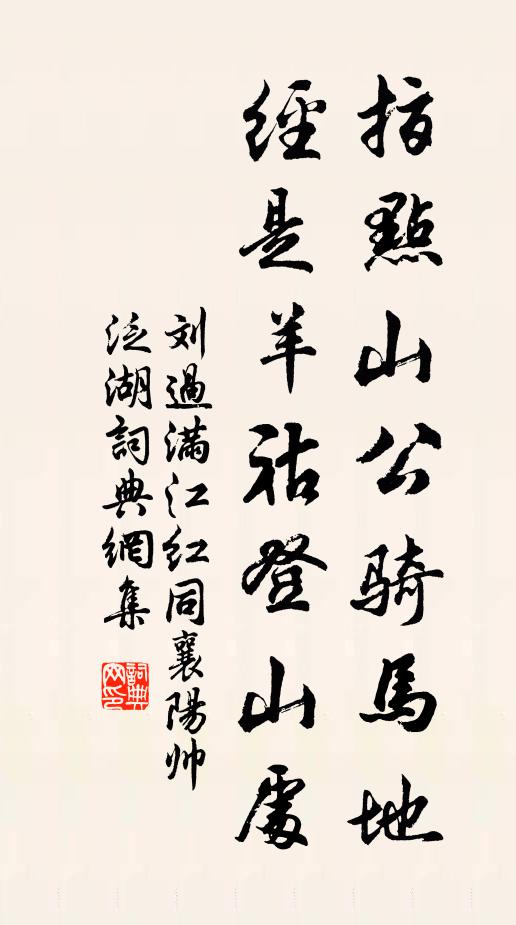 指點山公騎馬地
經是羊祜登山處
刘過满江红同襄陽帅
泛湖詞典網集
詞典网印